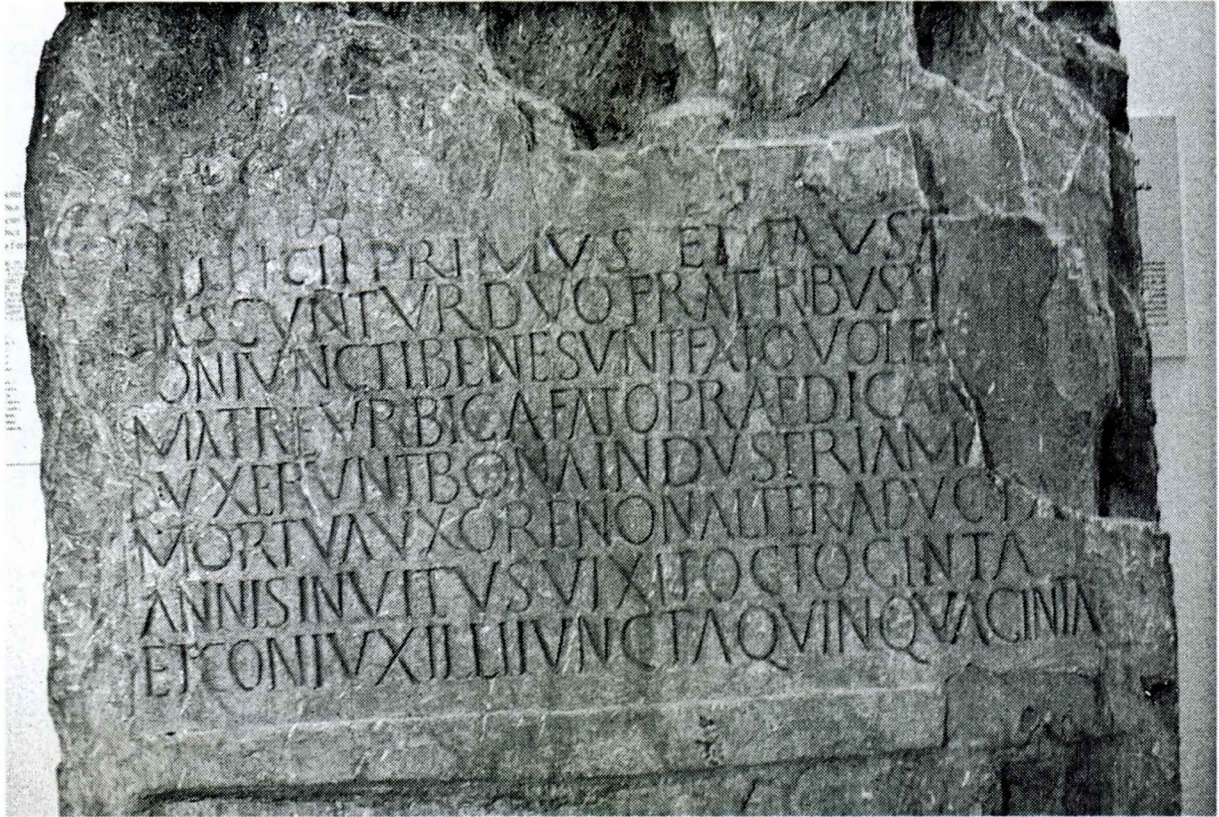 PRIMVS ET FAVS
ASCVNTVR DVO FRATRIBVS
ONIVNCTI BENE SVNT FATO VOLE
MATRE VRBICA FATO PRAEDICA
DVXERVNT BONA INDVSTRIA MA
MORTVA VXORE NON ALTERA DVCT
ANNIS INVITVS VIXIT OCTOGINTA
ET CONIVX ILLI IVNCTA QVINQVAGINTA